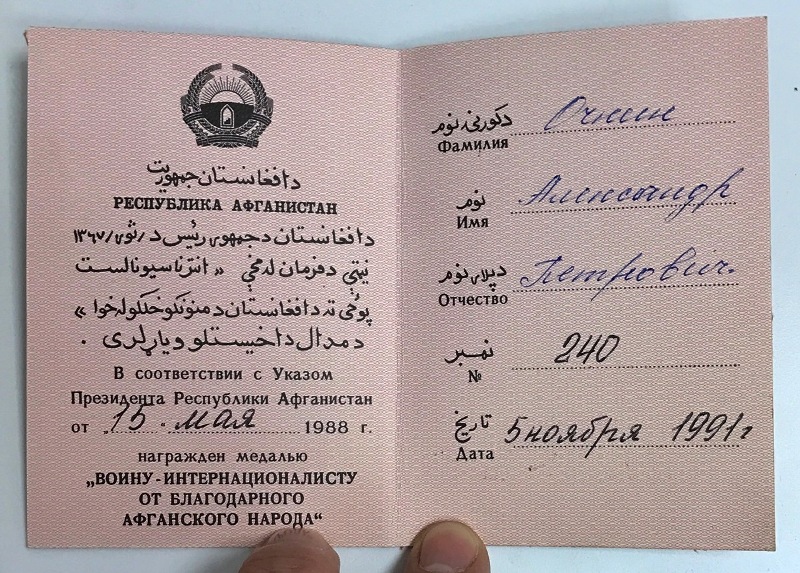 د افغانستان جمهوریت
РЕСПУБЛИКА АФГАНИСТАН
د افغانستان د جمهوری رئیس د / ثوی / ۱۳۶۷
نیټې د فرمان له مخې » انترناسیونالست
پوځی ته د افغانستان د منونکو خلکو له خوا «
د مدال د اخیستلو ویاړ لری .
В соответствии с Указом
Президента Республики Афганистан
от 15. мая 1988 г.
награжден медалью
„ВОИНУ-ИНТЕРНАЦИОНАЛИСТУ
ОТ БЛАГОДАРНОГО
АФГАНСКОГО НАРОДА“
د کورنۍ نوم
Фамилия
نوم
Имя Александр
د پلار نوم
Отчество Петрович.
نمبر
№ 240
تاریخ
Дата 5 ноября 1991 г